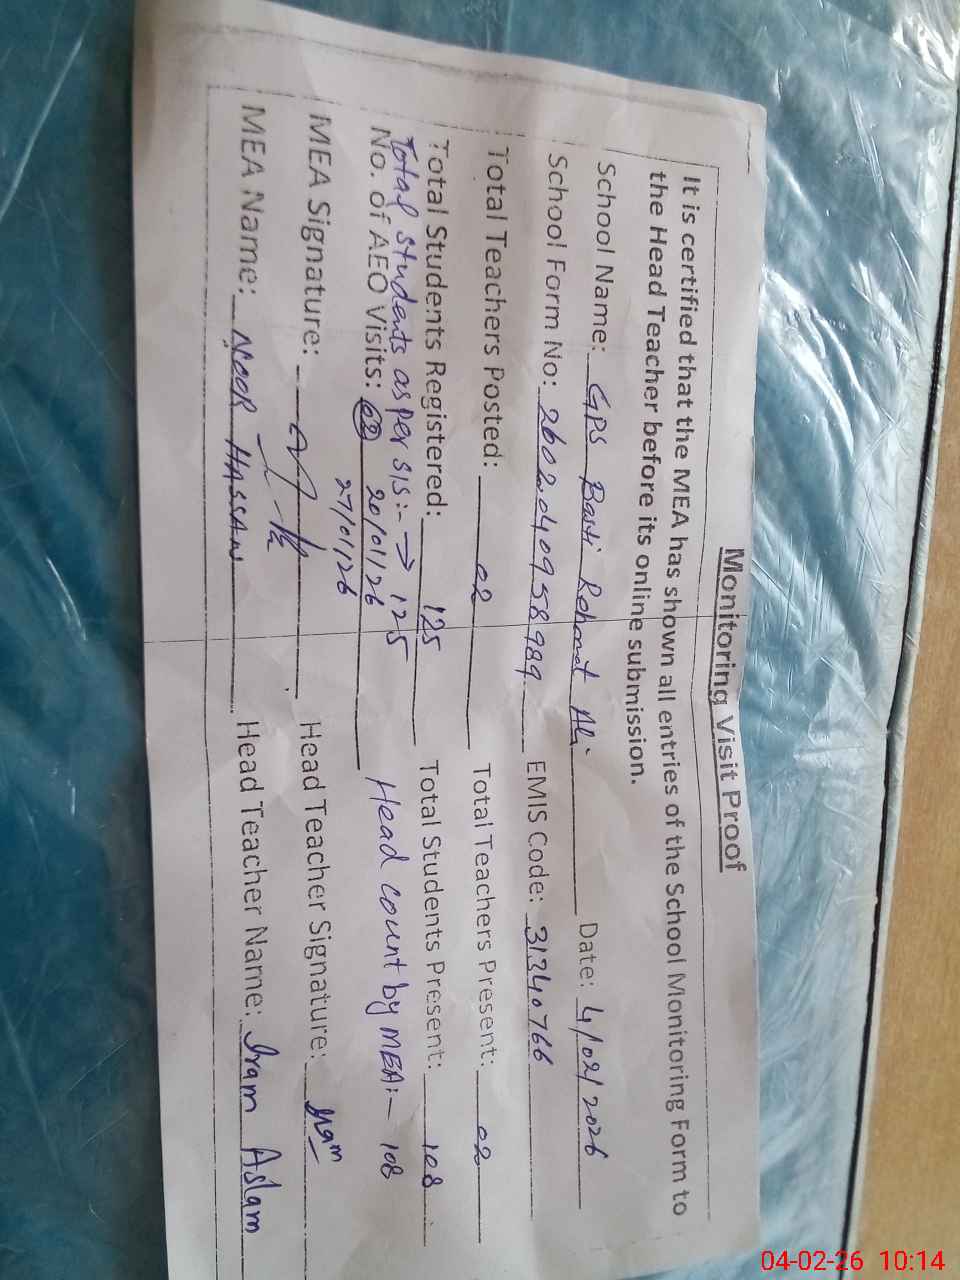 Monitoring Visit Proof
It is certified that the MEA has shown all entries of the School Monitoring Form to
the Head Teacher before its online submission.
School Name: GPS Basti Rehmat Ali Date: 4/02/2026
School Form No: 2602040958989 EMIS Code: 31340766
Total Teachers Posted: 02 Total Teachers Present: 02
Total Students Registered: 125 Total Students Present: 108
Total students as per SIS:- → 125
No. of AEO Visits: 02 20/01/26 Head count by MEA:- 108
27/01/26
MEA Signature: Head Teacher Signature: Iram
MEA Name: NOOR HASSAN Head Teacher Name: Iram Aslam
04-02-26 10:14